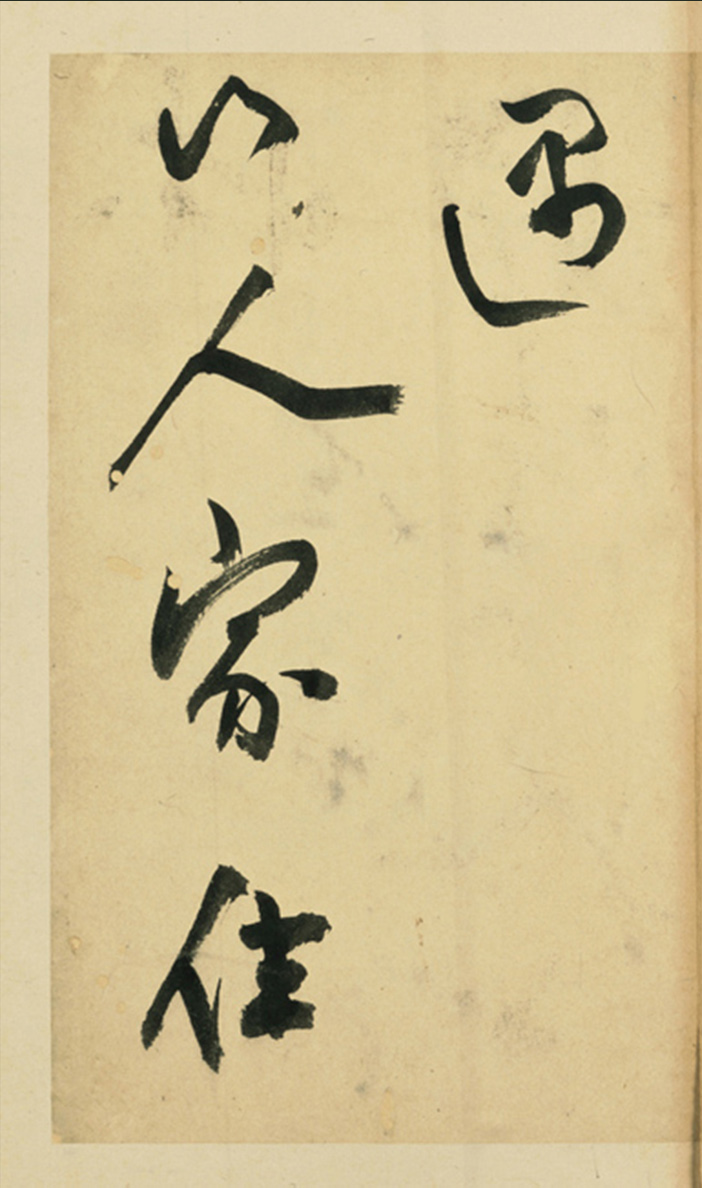 遇
山人家住